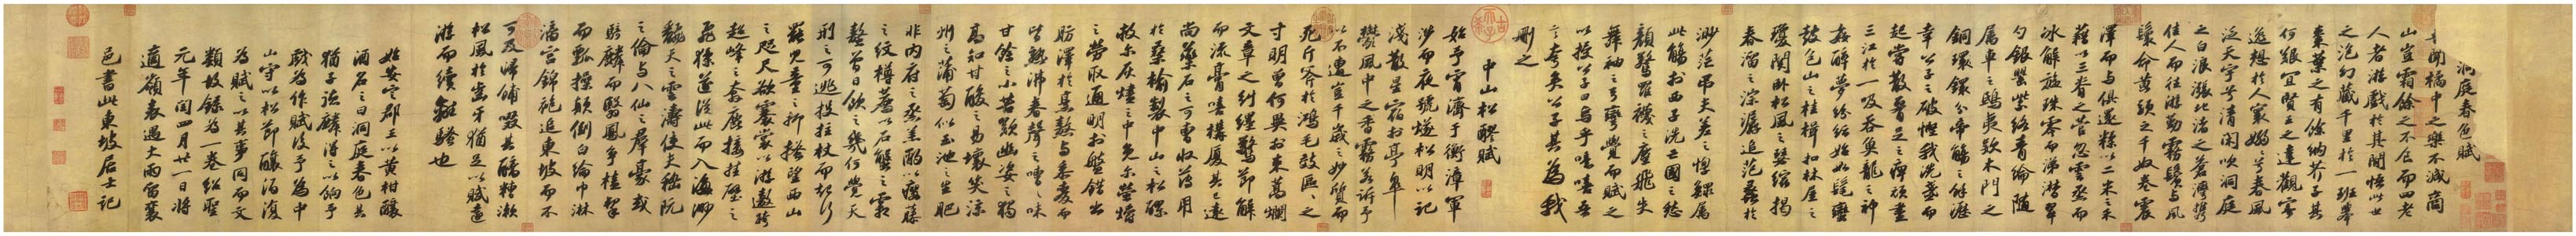 洞庭春色賦
吾聞橘中之樂不減商
山豈霜餘之不食而四老
人者游戲於其間悟此世
之泡幻藏千里於一班舉
棗葉之有餘納芥子其
何艱宜賢王之達觀寄
逸想於人寰嫋嫋兮春風
泛天宇兮清閑吹洞庭
之白浪漲北渚之蒼灣攜
佳人而往游勤霧鬢與風
鬟命黃頭之千奴卷震
澤而與俱還糅以二米之禾
藉以三脊之菅忽雲烝而
冰解旋珠零而涕潸翠
勺銀罌紫絡青綸隨
屬車之鴟夷款木門之
銅鐶分帝觴之餘瀝
幸公子之破慳我洗盞而
起嘗散腰足之痺頑盡
三江於一吸吞魚龍之神
姦醉夢紛紜始如髦蠻
鼓包山之桂楫扣林屋之
瓊關臥松風之瑟縮揭
春溜之淙潺追范蠡於
渺茫弔夫差之惸鰥屬
此觴於西子洗亡國之愁
顏驚羅襪之塵飛失
舞袖之弓彎覺而賦之
以授公子曰烏乎噫嘻吾
言夸矣公子其為我
刪之
中山松醪賦
始予宵濟于衡漳軍
涉而夜號燧松明以記
淺散星宿於亭皋
鬱風中之香霧若訴予
以不遭豈千歲之妙質而
死斤斧於鴻毛效區區之
寸明曾何異於束蒿爛
文章之糾纆驚節解
而流膏嘻構廈其已遠
尚藥石之可曹收薄用
於桑榆製中山之松醪
救爾灰燼之中免爾螢爝
之勞取通明於盤錯出
肪澤於烹熬與黍麥而
皆熟沸舂聲之嘈嘈味
甘餘之小苦歎幽姿之獨
高知甘酸之易壞笑涼
州之蒲萄似玉池之生肥
非內府之烝羔酌以癭藤
之紋樽薦以石蟹之霜
螯曾日飲之幾何覺天
刑之可逃投拄杖而起行
罷兒童之抑搔望西山
之咫尺欲褰裳以游遨跨
超峰之奔鹿接挂壁之
飛猱遂從此而入海渺
翻天之雲濤使夫嵇阮
之倫與八仙之群豪或
騎麟而翳鳳爭榼挈
而瓢操顛倒白綸巾淋
漓宮錦袍追東坡而不
可及歸餔歠其醨糟漱
松風於齒牙猶足以賦遠
游而續離騷也
始安定郡王以黃柑釀
酒名之曰洞庭春色其
猶子德麟得之以餉予
戲為作賦後予為中
山守以松節釀酒復
為賦之以其事同而文
類故錄為一卷紹聖
元年閏四月廿一日將
適嶺表遇大雨留襄
邑書此東坡居士記